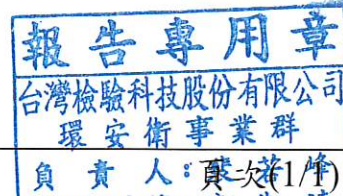 報告專用章
台灣檢驗科技股份有限公司
環安衛事業群
負責人：
頁次(1/1)